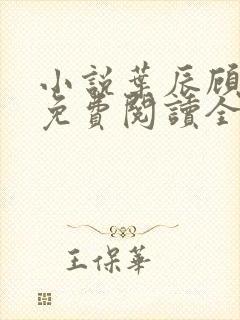 小說葉辰顾
免費閱讀全
王保華